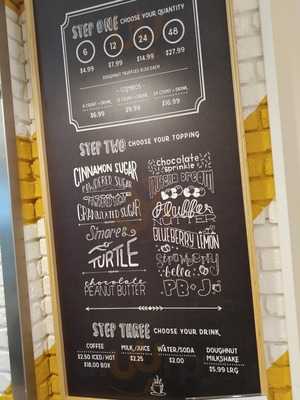 STEP ONE CHOOSE YOUR QUANTITY
6 12 24 48
$4.99 $7.99 $14.99 $27.99
DOUGHNUT TRUFFLES $1.25 EACH
COMBOS
6 COUNT + DRINK 12 COUNT + DRINK 24 COUNT + DRINK
$6.99 $9.99 $16.99
STEP TWO CHOOSE YOUR TOPPING
CINNAMON SUGAR
POWDERED SUGAR
GRANULATED SUGAR
S'mores
TURTLE
chocolate
PEANUT BUTTER
chocolate
sprinkle
DREAM
fluffer
NUTTER
BLUEBERRY LEMON
strawberry
bella
PB+J
STEP THREE CHOOSE YOUR DRINK
COFFEE MILK/JUICE WATER/SODA DOUGHNUT
MILKSHAKE
$2.50 ICED/HOT $2.25 $2.00 $5.99 LRG
$18.00 BOX